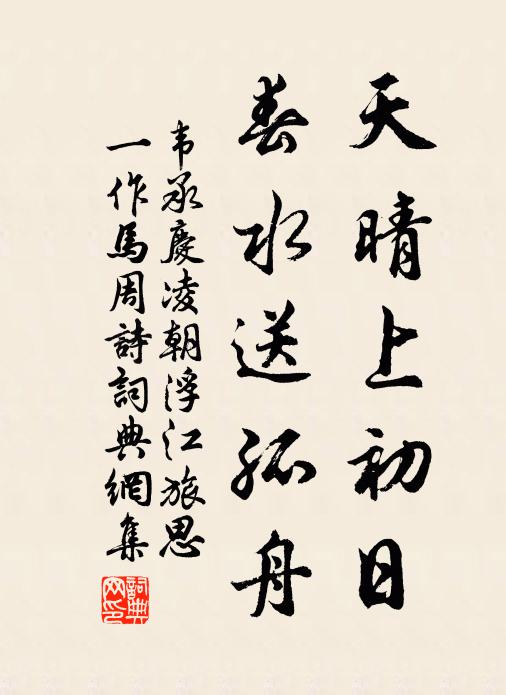 天晴上初日
春水送孤舟
韦承慶凌朝浮江旅思
一作馬周詩詞典網集
詞典网印